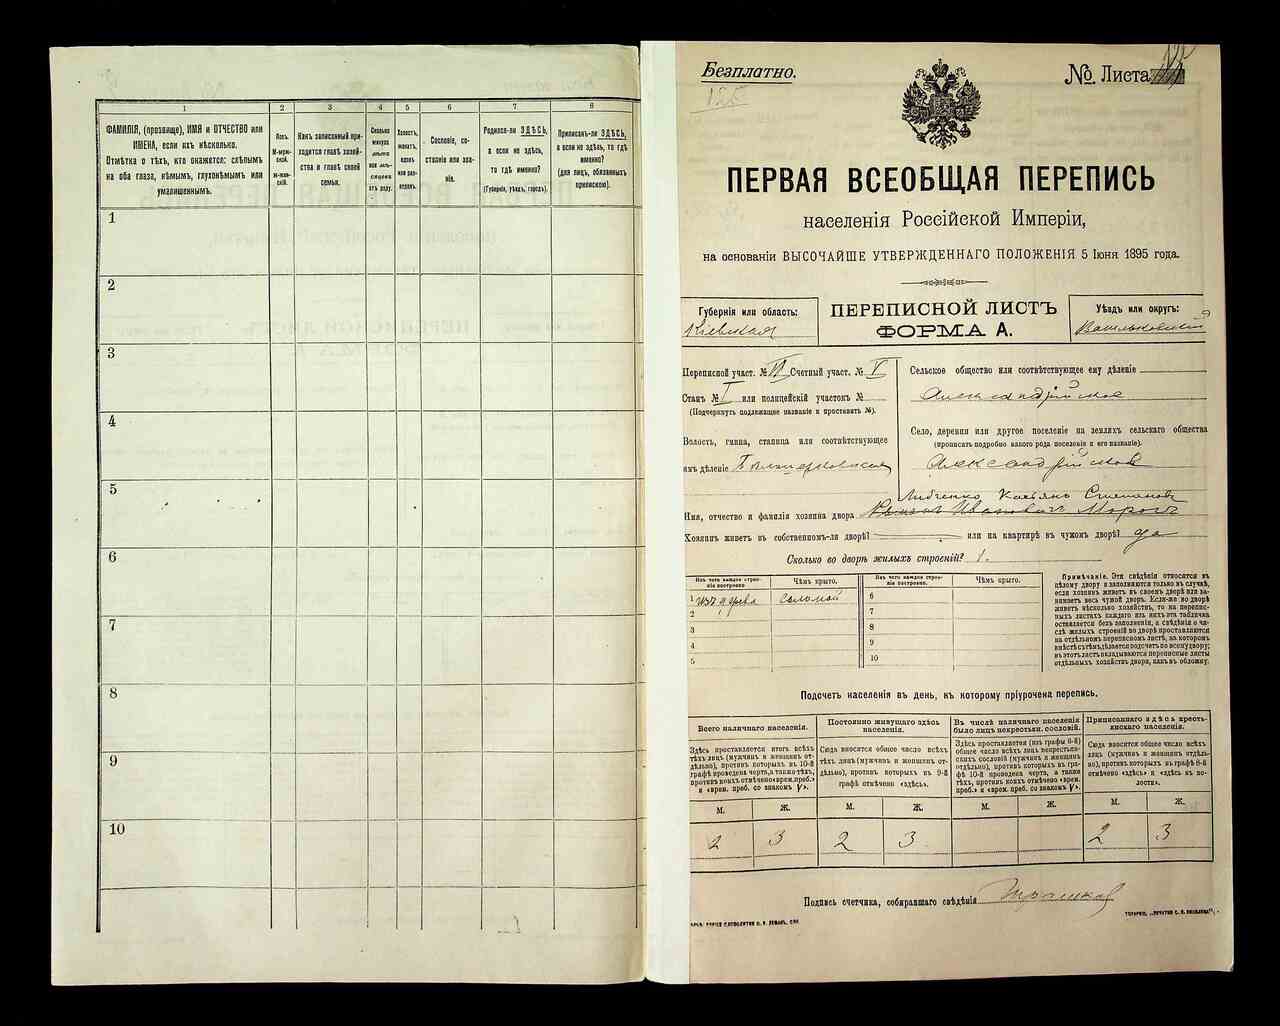 1 2 3 4 5 6 7 8
ФАМИЛІЯ, (прозвище), ИМЯ и ОТЧЕСТВО или
ИМЕНА, если ихъ нѣсколько.
Отмѣтка о тѣхъ, кто окажется: слѣпымъ
на оба глаза, нѣмымъ, глухонѣмымъ или
умалишеннымъ.
Полъ.
М-муж-
ской.
Ж-жен-
скій.
Какъ записанный при-
ходится главѣ хозяй-
ства и главѣ своей
семьи.
Сколько
минуло
лѣтъ
или мѣ-
сяцевъ
отъ роду.
Холостъ,
женатъ,
вдовъ
или раз-
веденъ.
Сословіе, со-
стояніе или зва-
ніе.
Родился-ли ЗДѢСЬ,
а если не здѣсь,
то гдѣ именно?
(Губернія, уѣздъ, городъ).
Приписанъ-ли ЗДѢСЬ,
а если не здѣсь, то гдѣ
именно?
(для лицъ, обязанныхъ
припискою).
1
2
3
4
5
6
7
8
9
10
Безплатно.
№ Листа
125
ПЕРВАЯ ВСЕОБЩАЯ ПЕРЕПИСЬ
населенія Россійской Имперіи,
на основаніи ВЫСОЧАЙШЕ УТВЕРЖДЕННАГО ПОЛОЖЕНІЯ 5 Іюня 1895 года.
Губернія или область:
Кіевская
ПЕРЕПИСНОЙ ЛИСТЪ
ФОРМА А.
Уѣздъ или округъ:
Васильковскій
Переписной участ. № VI Счетный участ. № V
Станъ № I или полицейскій участокъ №
(Подчеркнуть подлежащее названіе и проставить №).
Волость, гмина, станица или соотвѣтствующее
имъ дѣленіе
Сельское общество или соотвѣтствующее ему дѣленіе
Александрійское
Село, деревня или другое поселеніе на земляхъ сельскаго общества
(прописать подробно какого рода поселеніе и его названіе).
Имя, отчество и фамилія хозяина двора Иванович Мороз
Хозяинъ живетъ въ собственномъ-ли дворѣ? или на квартирѣ въ чужомъ дворѣ? да
Сколько во дворѣ жилыхъ строеній? 1.
Изъ чего каждое строе-
ніе построено
Чѣмъ крыто.
Изъ чего каждое строе-
ніе построено.
Чѣмъ крыто.
1 изъ дерева Соломой 6
2 7
3 8
4 9
5 10
Примѣчаніе. Эти свѣдѣнія относятся къ
цѣлому двору и заполняются только въ случаѣ,
если хозяинъ живетъ въ своемъ дворѣ или за-
нимаетъ весь чужой дворъ. Если-же во дворѣ
живетъ нѣсколько хозяйствъ, то на перепис-
ныхъ листахъ каждаго изъ нихъ эта табличка
оставляется безъ заполненія, а свѣдѣнія о чи-
слѣ жилыхъ строеній во дворѣ проставляются
на отдѣльномъ переписномъ листѣ, на которомъ
вмѣстѣ съ тѣмъ дѣлается подсчетъ по всему двору;
въ этотъ листъ вкладываются переписные листы
отдѣльныхъ хозяйствъ двора, какъ въ обложку.
Подсчетъ населенія въ день, къ которому пріурочена перепись.
Всего наличнаго населенія.
Постоянно живущаго здѣсь
населенія.
Въ числѣ наличнаго населенія
было лицъ некрестьян. сословій.
Приписаннаго здѣсь кресть-
янскаго населенія.
Здѣсь проставляется итогъ всѣхъ
тѣхъ лицъ (мужчинъ и женщинъ от-
дѣльно), противъ которыхъ въ 10-й
графѣ проведена черта, а также тѣхъ,
противъ коихъ отмѣчено «врем. преб.»
и «врем. преб. со знакомъ V».
Сюда вносится общее число всѣхъ
тѣхъ лицъ (мужчинъ и женщинъ от-
дѣльно), противъ которыхъ въ 9-й
графѣ отмѣчено «здѣсь».
Здѣсь проставляется (изъ графы 6-й)
общее число всѣхъ лицъ некрестьян-
скихъ сословій (мужчинъ и женщинъ
отдѣльно), противъ которыхъ въ гра-
фѣ 10-й проведена черта, а также
тѣхъ, противъ коихъ отмѣчено «врем.
преб.» и «врем. преб. со знакомъ V».
Сюда вносится общее число всѣхъ
лицъ (мужчинъ и женщинъ отдѣль-
но), противъ которыхъ въ графѣ 8-й
отмѣчено «здѣсь» и «здѣсь въ во-
лости».
М. Ж. М. Ж. М. Ж. М. Ж.
2 3 2 3 2 3
Подпись счетчика, собиравшаго свѣдѣнія